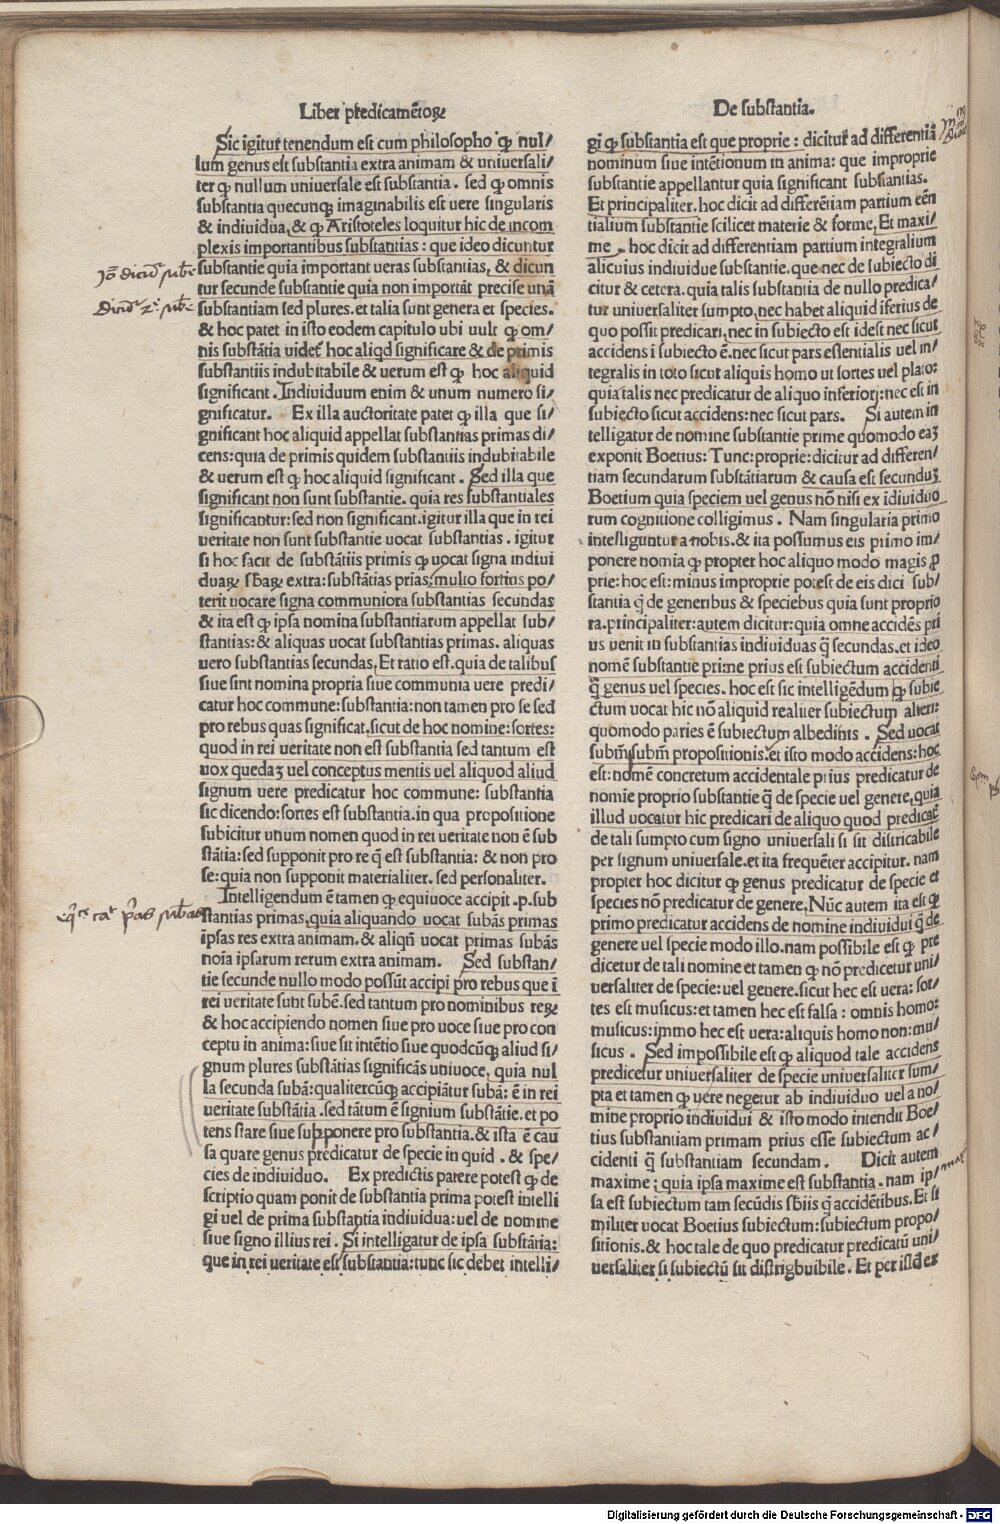 Liber p̄dicamẽtoꝝ
Sic igitur tenendum est cum philosopho ꝙ nul/
lum genus est substantia extra animam & uniuersali/
ter ꝙ nullum uniuersale est substantia . sed ꝙ omnis
substantia quecunqꝫ imaginabilis est uere singularis
& indiuidua, & ꝙ Aristoteles loquitur hic de incom
plexis importantibus substantias : que ideo dicuntur
substantie quia important ueras substantias, & dicun
tur secunde substantie quia non importāt precise unã
substantiam sed plures. et talia sunt genera et species.
& hoc patet in isto eodem capitulo ubi uult ꝙ om/
nis substãtia uidet̄ hoc aliqd significare & de primis
substantiis indubitabile & uerum est ꝙ hoc aliquid
significant . Indiuiduum enim & unum numero si/
gnificatur. Ex illa auctoritate patet ꝙ illa que si/
gnificant hoc aliquid appellat substantias primas di/
cens: quia de primis quidem substantiis indubitabile
& uerum est ꝙ hoc aliquid significant . Sed illa que
significant non sunt substantie. quia res substantiales
significantur: sed non significant. igitur illa que in rei
ueritate non sunt substantie uocat substantias . igitur
si hoc facit de substãtiis primis ꝙ uocat signa indiui
duaꝝ sb̄aꝝ extra: substãtias prias: multo fortius po/
terit uocare signa communiora substantias secundas
& ita est ꝙ ipsa nomina substantiarum appellat sub/
stantias: & aliquas uocat substantias primas. aliquas
uero substantias secundas. Et ratio est. quia de talibus
siue sint nomina propria siue communia uere predi/
catur hoc commune: substantia: non tamen pro se sed
pro rebus quas significat, sicut de hoc nomine: sortes:
quod in rei ueritate non est substantia sed tantum est
uox quedaꝫ uel conceptus mentis uel aliquod aliud
signum uere predicatur hoc commune: substantia
sic dicendo: sortes est substantia. in qua propositione
subicitur unum nomen quod in rei ueritate non ẽ sub
stãtia: sed supponit pro re q̃ est substantia: & non pro
se: quia non supponit materialiter. sed personaliter.
Intelligendum ẽ tamen ꝙ equiuoce accipit .p. sub
stantias primas, quia aliquando uocat subãs primas
ipsas res extra animam. & aliqñ uocat primas subãs
noĩa ipsarum rerum extra animam. Sed substan/
tie secunde nullo modo possũt accipi pro rebus que ĩ
rei ueritate sunt subẽ. sed tantum pro nominibus reꝝ
& hoc accipiendo nomen siue pro uoce siue pro con
ceptu in anima: siue sit intẽtio siue quodcũqꝫ aliud si/
gnum plures substãtias significãs uniuoce, quia nul
la secunda subã: qualitercũqꝫ accipiãtur subã: ẽ in rei
ueritate substãtia . sed tãtum ẽ signium substãtie. et po
tens stare siue supponere pro substantia. & ista ẽ cau
sa quare genus predicatur de specie in quid . & spe/
cies de indiuiduo. Ex predictis parere potest ꝙ de
scriptio quam ponit de substantia prima potest intelli
gi uel de prima substantia indiuidua: uel de nomine
siue signo illius rei . Si intelligatur de ipsa substãtia:
que in rei ueritate est substantia: tunc sic debet intelli/
De substantia.
gi ꝙ substantia est que proprie : dicitur̄ ad differentiã
nominum siue intẽtionum in anima: que improprie
substantie appellantur quia significant substantias.
Et principaliter. hoc dicit ad differẽtiam partium eẽn
tialium substantie scilicet materie & forme, Et maxi/
me . hoc dicit ad differentiam partium integralium
alicuius indiuidue substantie. que nec de subiecto di
citur & cetera. quia talis substantia de nullo predica/
tur uniuersaliter sumpto, nec habet aliquid iferius de
quo possit predicari, nec in subiecto est idest nec sicut
accidens ĩ subiecto ẽ. nec sicut pars essentialis uel in/
tegralis in toto sicut aliquis homo ut sortes uel plato:
quia talis nec predicatur de aliquo inferiori: nec est in
subiecto sicut accidens: nec sicut pars. Si autem in
telligatur de nomine substantie prime quomodo eaꝫ
exponit Boetius: Tunc: proprie: dicitur ad differen/
tiam secundarum substãtiarum & causa est secunduꝫ
Boetium quia speciem uel genus nõ nisi ex idiuiduo
rum cognitione colligimus . Nam singularia primo
intelliguntur a nobis. & ita possumus eis primo im/
ponere nomia ꝙ propter hoc aliquo modo magis ꝓ
prie: hoc est: minus improprie potest de eis dici sub/
stantia q̃ de generibus & speciebus quia sunt proprio
ra. principaliter: autem dicitur: quia omne accidẽs pri
us uenit in substantias indiuiduas q̃ secundas. et ideo
nomẽ substantie prime prius est subiectum accidenti
q̃ genus uel species. hoc est sic intelligẽdum ꝙ subie
ctum uocat hic nõ aliquid realiter subiectum alteri:
quomodo paries ẽ subiectum albedinis . Sed uocat
subm̃ subm̃ propositionis. et isto modo accidens: hoc
est: nomẽ concretum accidentale prius predicatur de
nomĩe proprio substantie q̃ de specie uel genere, quia
illud uocatur hic predicari de aliquo quod predicat̃
de tali sumpto cum signo uniuersali si sit districabile
per signum uniuersale. et ita frequẽter accipitur. nam
propter hoc dicitur ꝙ genus predicatur de specie et
species nõ predicatur de genere, Nũc autem ita est ꝙ
primo predicatur accidens de nomine indiuidui q̃ de
genere uel specie modo illo. nam possibile est ꝙ pre
dicetur de tali nomine et tamen ꝙ nõ predicetur uni/
uersaliter de specie: uel genere. sicut hec est uera: sor/
tes est musicus: et tamen hec est falsa : omnis homo:
musicus: immo hec est uera: aliquis homo non: mu/
sicus . Sed impossibile est ꝙ aliquod tale accidens
predicetur uniuersaliter de specie uniuersaliter sum/
pta et tamen ꝙ uere negetur ab indiuiduo uel a no/
mine proprio indiuidui & isto modo intendit Boe/
tius substantiam primam prius esse subiectum ac/
cidenti q̃ substantiam secundam. Dicit autem
maxime ; quia ipsa maxime est substantia . nam ip/
sa est subiectum tam secũdis sb̄iis q̃ accidẽtibus. Et si
militer uocat Boetius subiectum: subiectum propo/
sitionis. & hoc tale de quo predicatur predicatũ uni/
uersaliter si subiectũ sit distrigbuibile . Et per istd ex
Digitalisierung gefördert durch die Deutsche Forschungsgemeinschaft - DFG